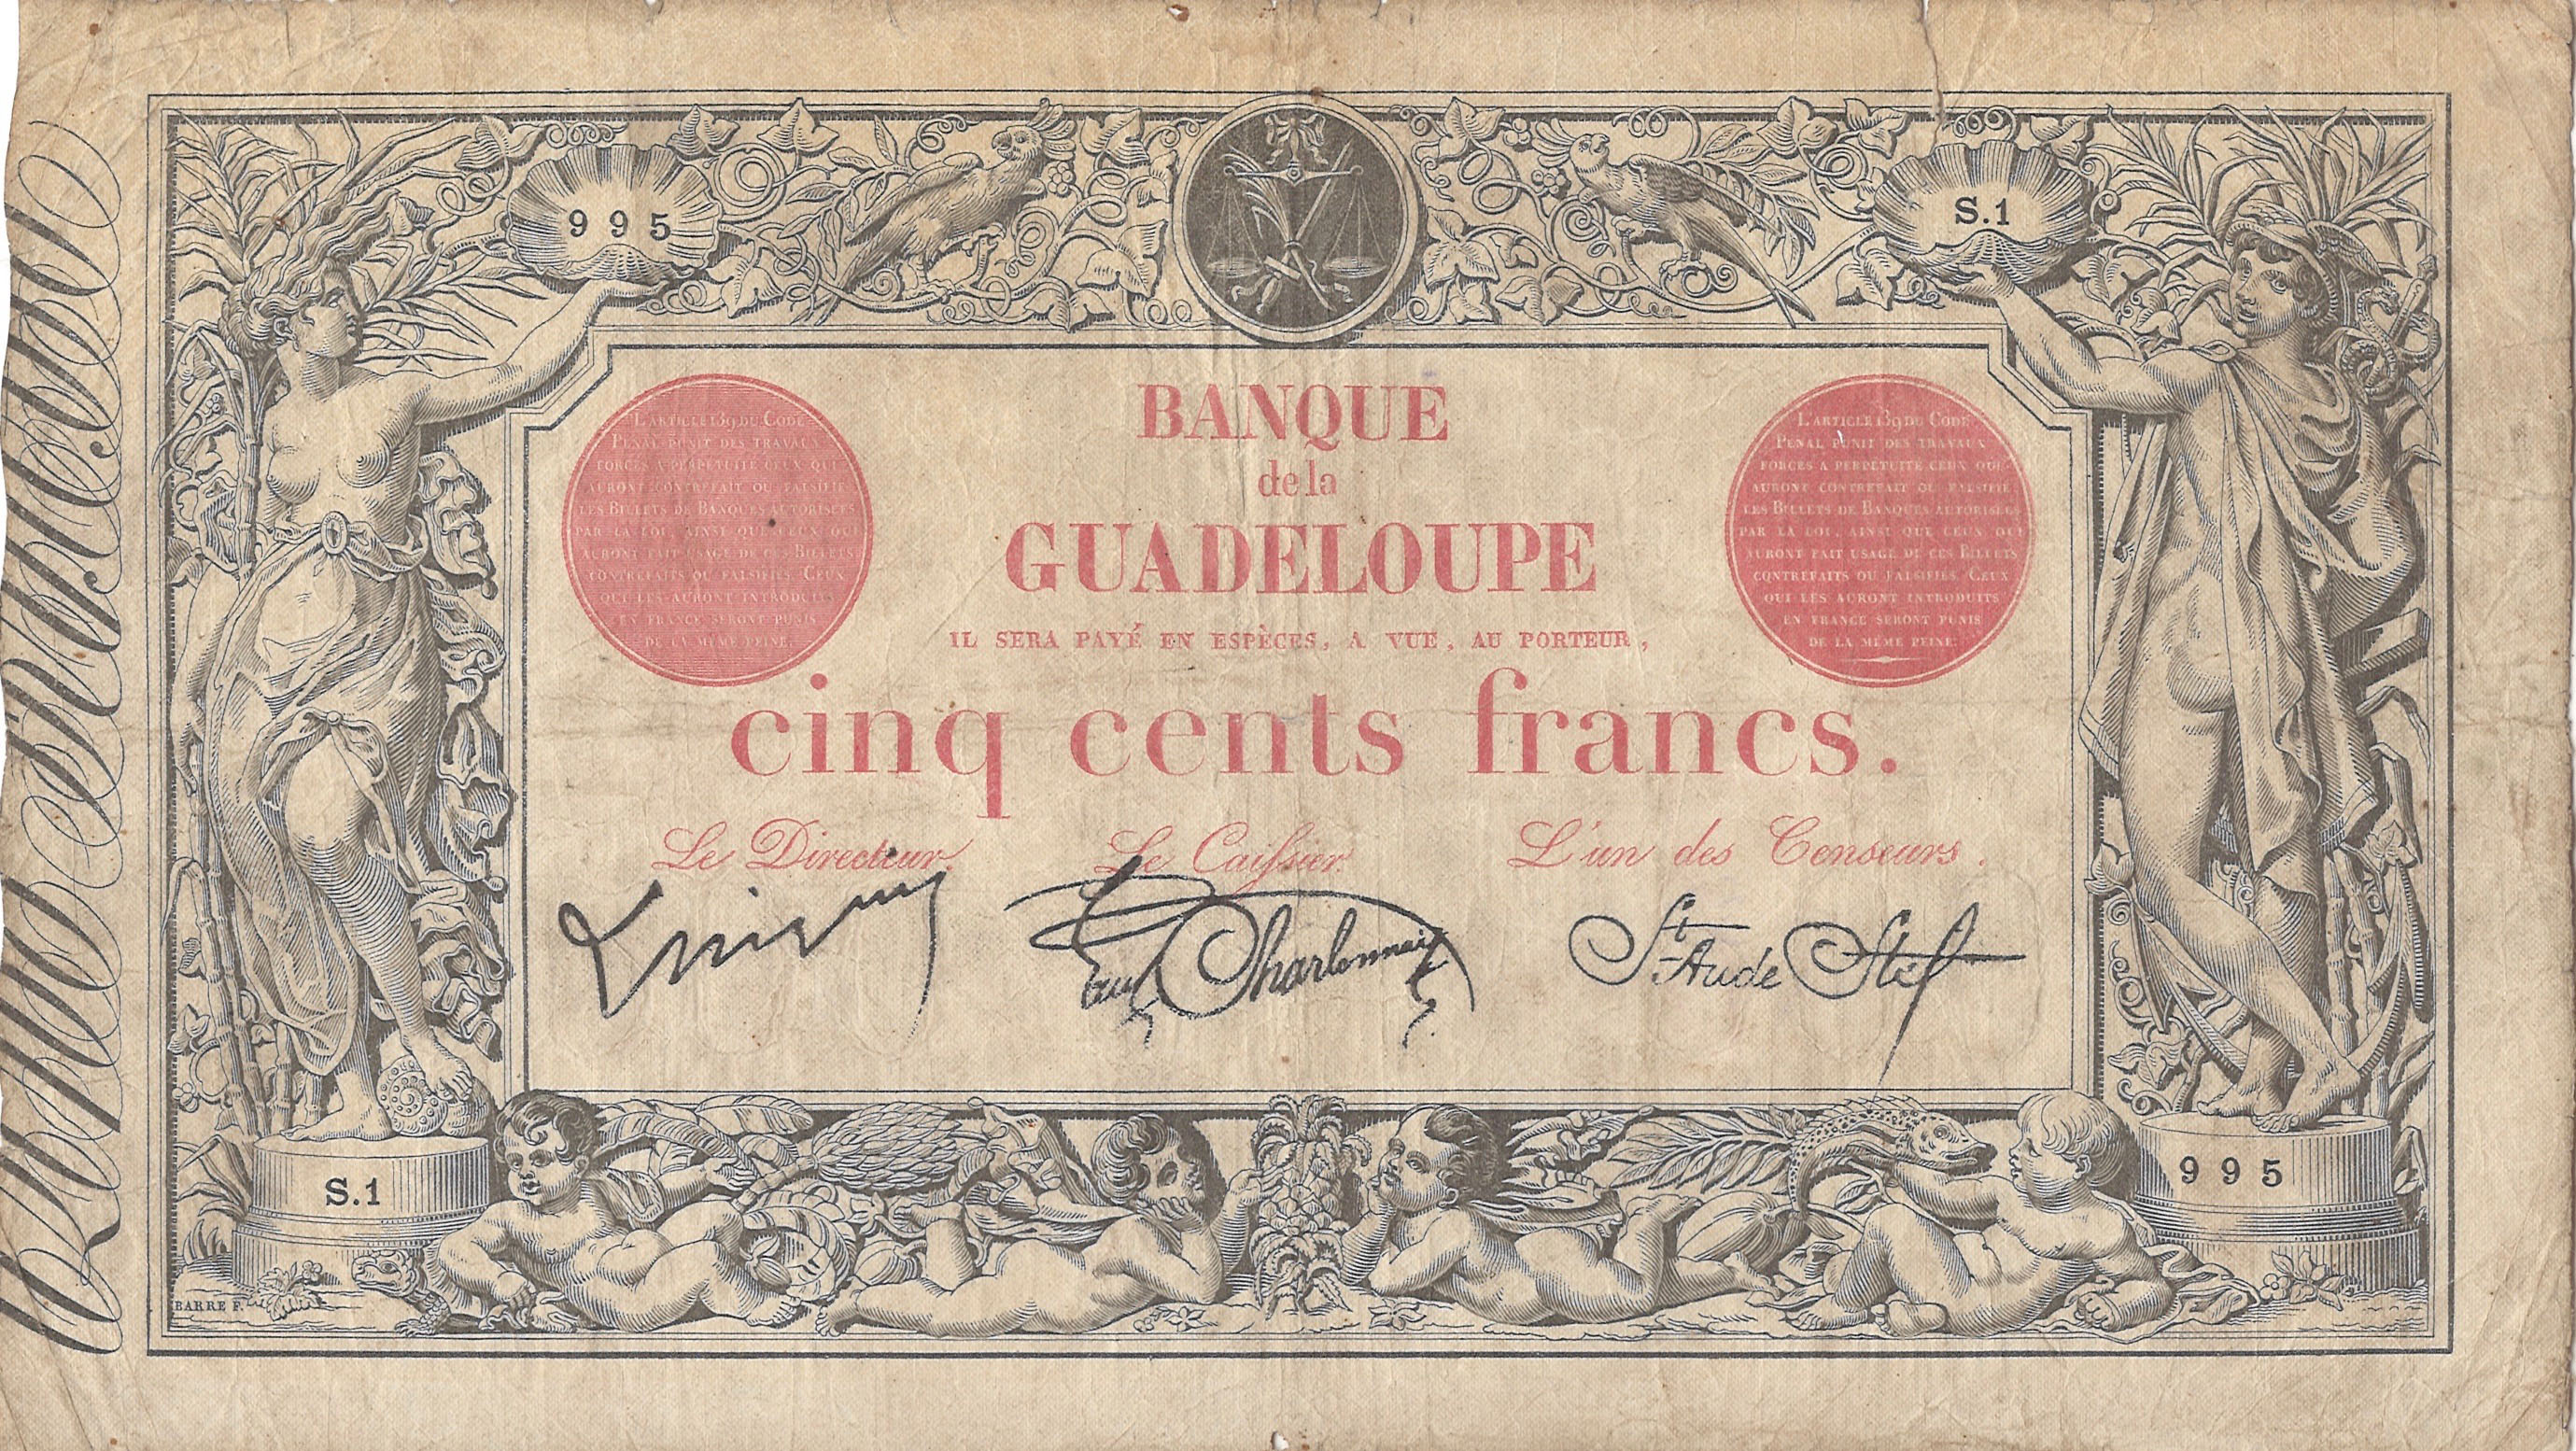 995
S.1
L'ARTICLE 139 DU CODE
PENAL PUNIT DES TRAVAUX
FORCES A PERPETUITE CEUX QUI
AURONT CONTREFAIT OU FALSIFIE
LES BILLETS DE BANQUES AUTORISEES
PAR LA LOI, AINSI QUE CEUX QUI
AURONT FAIT USAGE DE CES BILLETS
CONTREFAITS OU FALSIFIES. CEUX
QUI LES AURONT INTRODUITS
EN FRANCE SERONT PUNIS
DE LA MEME PEINE.
BANQUE
de la
GUADELOUPE
IL SERA PAYÉ EN ESPÈCES, A VUE, AU PORTEUR,
cinq cents francs.
L'ARTICLE 139 DU CODE
PENAL PUNIT DES TRAVAUX
FORCES A PERPETUITE CEUX QUI
AURONT CONTREFAIT OU FALSIFIE
LES BILLETS DE BANQUES AUTORISEES
PAR LA LOI, AINSI QUE CEUX QUI
AURONT FAIT USAGE DE CES BILLETS
CONTREFAITS OU FALSIFIES. CEUX
QUI LES AURONT INTRODUITS
EN FRANCE SERONT PUNIS
DE LA MEME PEINE.
Le Directeur. Le Caissier. L'un des Censeurs.
Charbonnais St Aude
S.1
995
BARRE F.